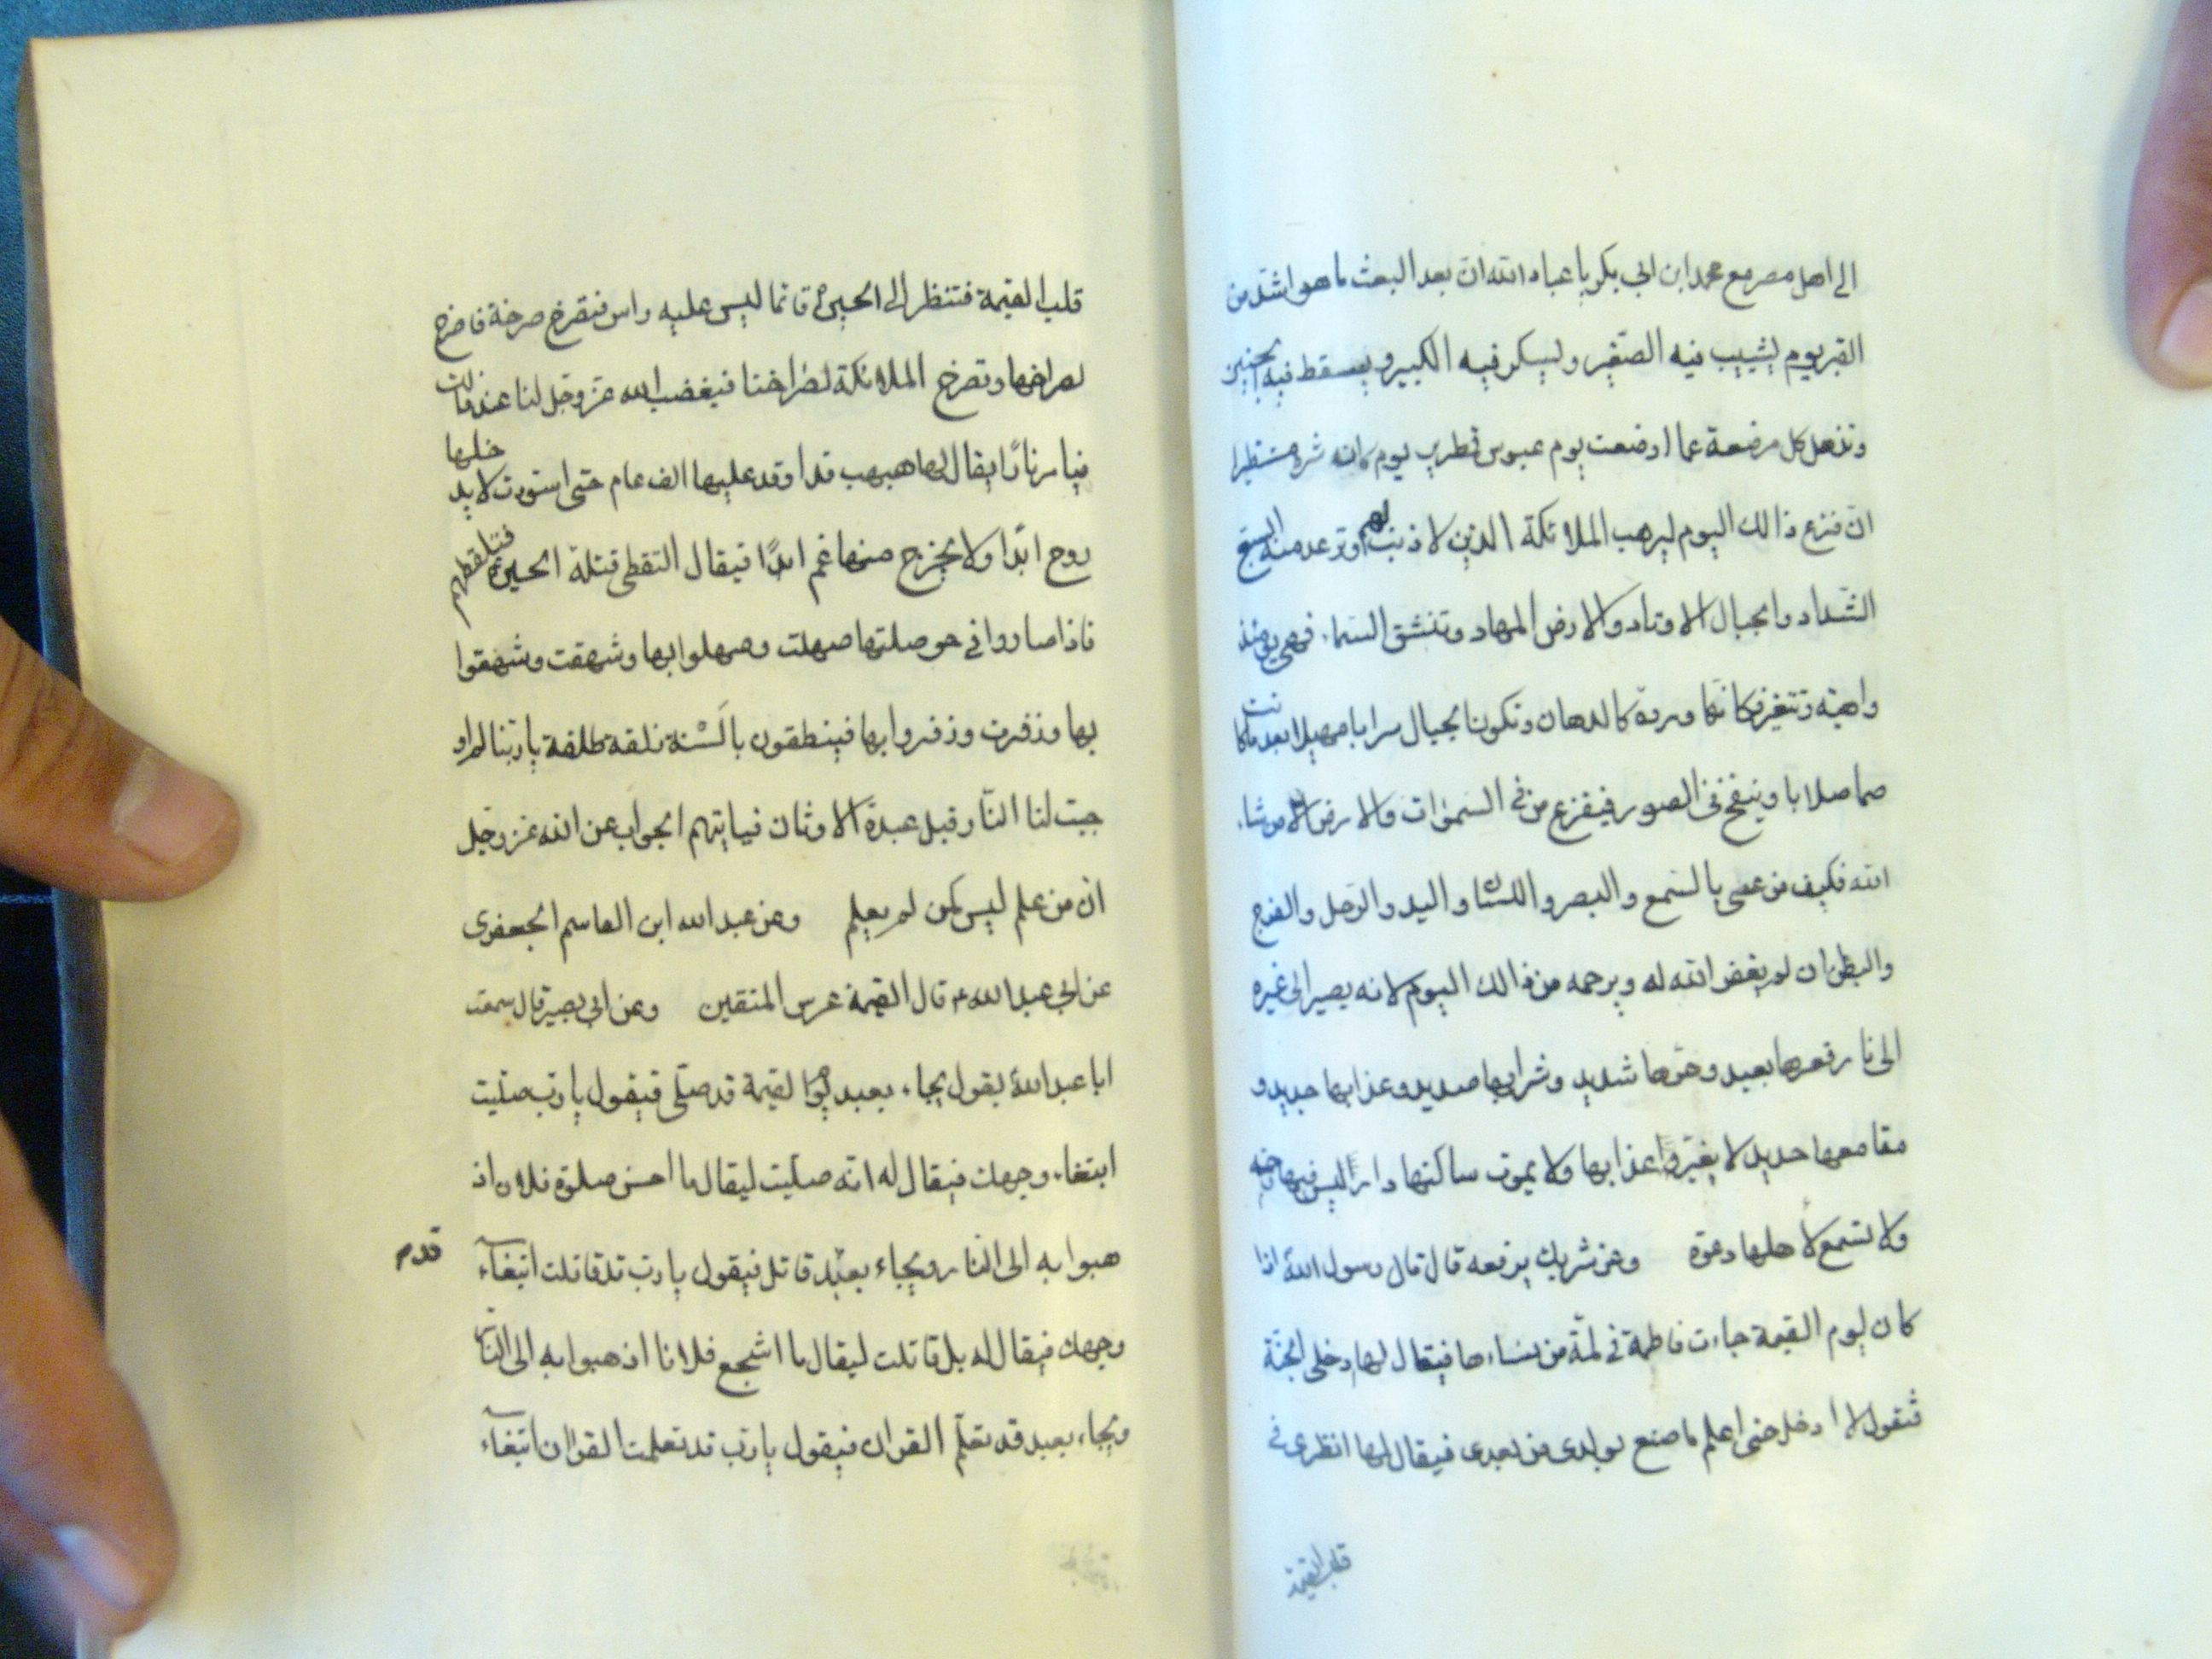 الى اهل مصر مع محمد ابن ابي بكر يا عباد الله ان بعد البعث ما هو اشد من
القبر يوم يشيب فيه الصغير ويسكر فيه الكبير ويسقط فيه الجنين
وتذهل كل مرضعة عما ارضعت يوم عبوس قطرير يوم كان شره مستطيرا
ان فزع ذالك اليوم ليرهب الملائكة الذين لا ذنب لهم وترعد منه السبع
الشداد والجبال الاوتاد والارض المهاد وتنشق السماء فهي يومئذ
واهية وتتغير فكانها وردة كالدهان وتكون الجبال سرابا مهيلا بعد ما كانت
صما صلابا وينفخ في الصور فيفزع من في السموات والارض الا من شاء
الله فكيف من عصى بالسمع والبصر واللسان واليد والرجل والفرج
والبطن ان لم يغفر الله له ويرحمه من ذالك اليوم لانه يصير الى غيره
الى نار قعرها بعيد وحرها شديد وشرابها صديد وعذابها جديد و
مقامعها حديد لا يغير عذابها ولا يموت ساكنها دار ليس فيها رحمة
ولا تسمع لاهلها دعوة وعن شريك يرفعه قال قال رسول الله اذا
كان يوم القيمة جاءت فاطمة في لمة من نساءها فيقال لها ادخلي الجنة
فتقول لا ادخل حتى اعلم ما صنع بولدي من بعدي فيقال لها انظري في
قلب القيمة
قلب القيمة فتنظر الى الحسين قائما ليس عليه راس فتصرخ صرخة فاصرخ
لصراخها وتصرخ الملائكة لصراخنا فيغضب الله عز وجل لنا عند ذالك
فيامر نارا يقال لها هبهب قد اوقد عليها الف عام حتى اسودت لا يدخلها
روح ابدا ولا يخرج منها غم ابدا فيقال التقطي قتلة الحسين فتلتقطهم
فاذا صاروا في حوصلتها صهلت وصهلوا بها وشهقت وشهقوا
بها وزفرت وزفروا بها فينطقون بالسنة ذلقة طلقة يا ربنا لم او
جبت لنا النار قبل عبدة الاوثان فياتيهم الجواب عن الله عز وجل
ان من علم ليس كمن لم يعلم وعن عبد الله ابن القاسم الجعفري
عن ابي عبد الله ع قال القيمة عرس المتقين وعن ابي بصير قال سمعت
ابا عبد الله يقول يجاء بعبد يوم القيمة قد صلى فيقول يا رب صليت
ابتغاء وجهك فيقال له انه صليت ليقال ما احسن صلوة فلان اذ
هبوا به الى النار ويجاء بعبد قاتل فيقول يا رب قد قاتلت ابتغاء
قدم
وجهك فيقال له بل قاتلت ليقال ما اشجع فلانا اذهبوا به الى النار
ويجاء بعبد قد تعلم القران فيقول يا رب قد تعلمت القران ابتغاء